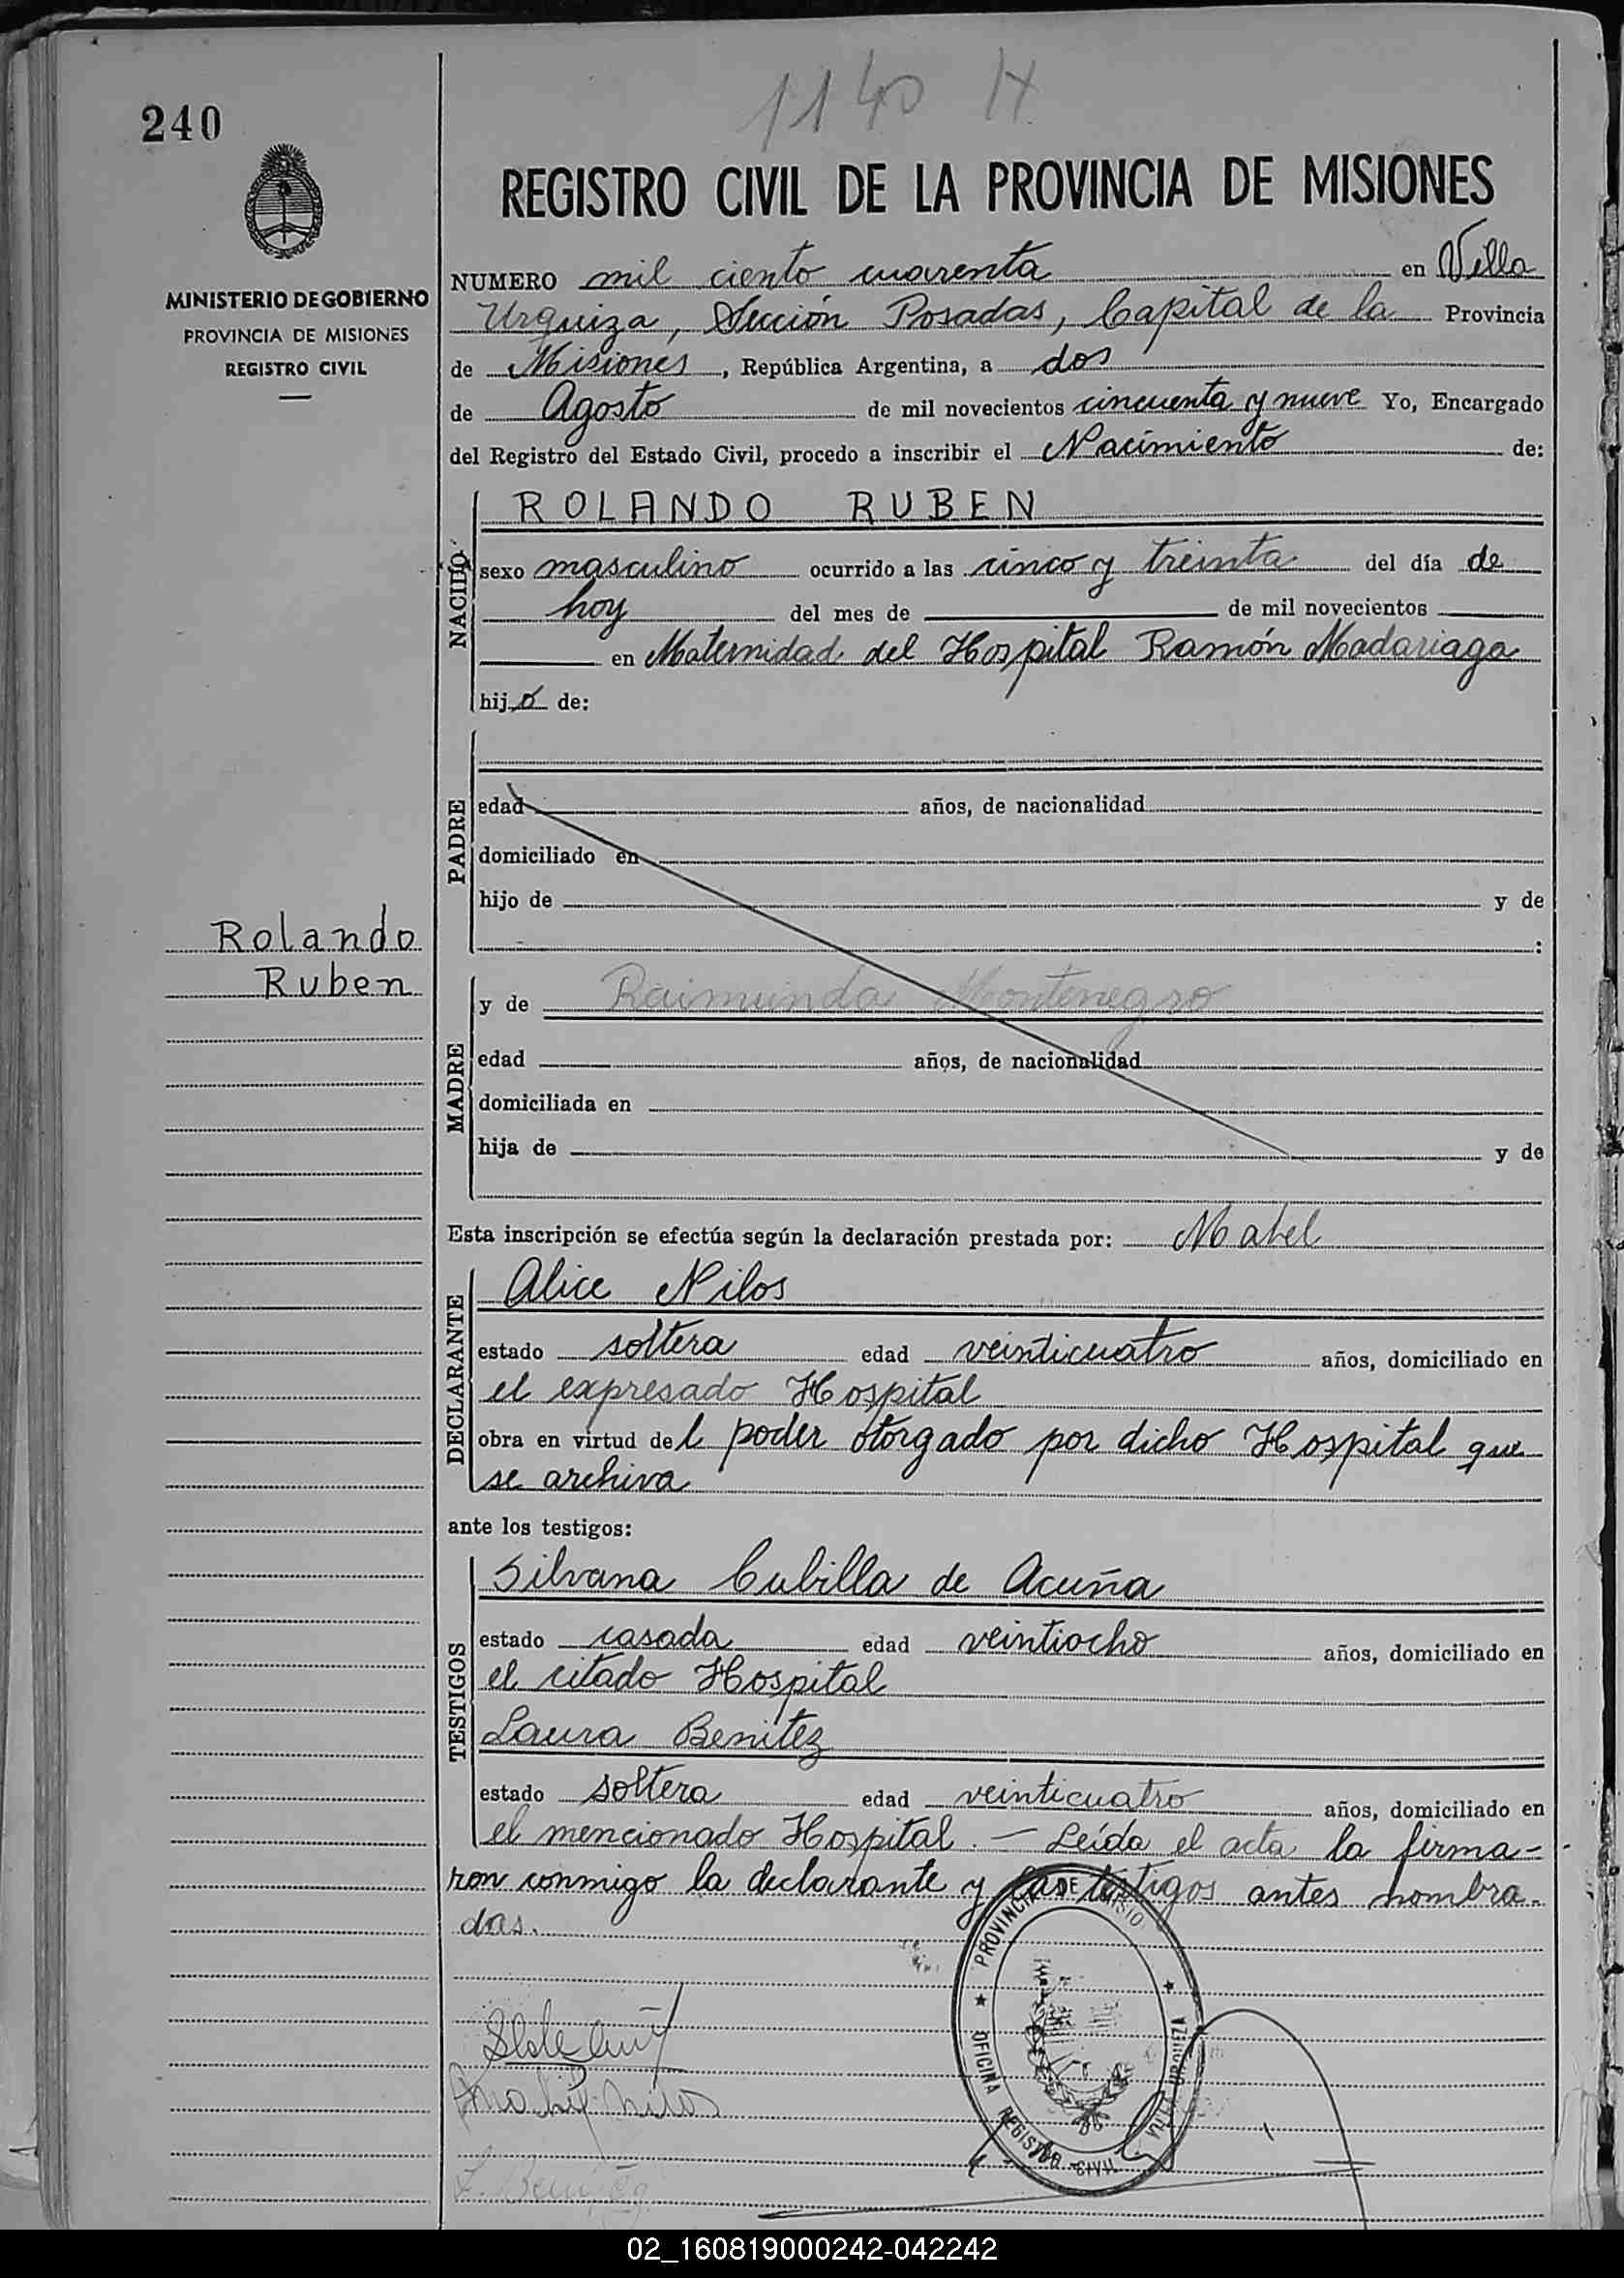 1140 H
240
REGISTRO CIVIL DE LA PROVINCIA DE MISIONES
MINISTERIO DE GOBIERNO
PROVINCIA DE MISIONES
REGISTRO CIVIL
NUMERO mil ciento cuarenta en Villa
Urquiza, Sección Posadas, Capital de la Provincia
de Misiones, República Argentina, a dos
de Agosto de mil novecientos cincuenta y nueve Yo, Encargado
del Registro del Estado Civil, procedo a inscribir el Nacimiento de:
NACIDO
ROLANDO RUBEN
sexo masculino ocurrido a las cinco y treinta del día de
hoy del mes de de mil novecientos
en Maternidad del Hospital Ramón Madariaga
hijo de:
PADRE
edad años, de nacionalidad
domiciliado en
hijo de y de
:
Rolando
Ruben
MADRE
y de Raimunda Montenegro
edad años, de nacionalidad
domiciliada en
hija de y de
Esta inscripción se efectúa según la declaración prestada por: Mabel
DECLARANTE
Alice Nilos
estado soltera edad veinticuatro años, domiciliado en
el expresado Hospital
obra en virtud del poder otorgado por dicho Hospital que
se archiva
ante los testigos:
TESTIGOS
Silvana Cubilla de Acuña
estado casada edad veintiocho años, domiciliado en
el citado Hospital
Laura Benitez
estado soltera edad veinticuatro años, domiciliado en
el mencionado Hospital. — Leída el acta la firma-
ron conmigo la declarante y las testigos antes nombra-
das.
PROVINCIA DE
OFICINA REGISTRO CIVIL
VILLA URQUIZA
Nilos
L. Benitez
02_160819000242-042242